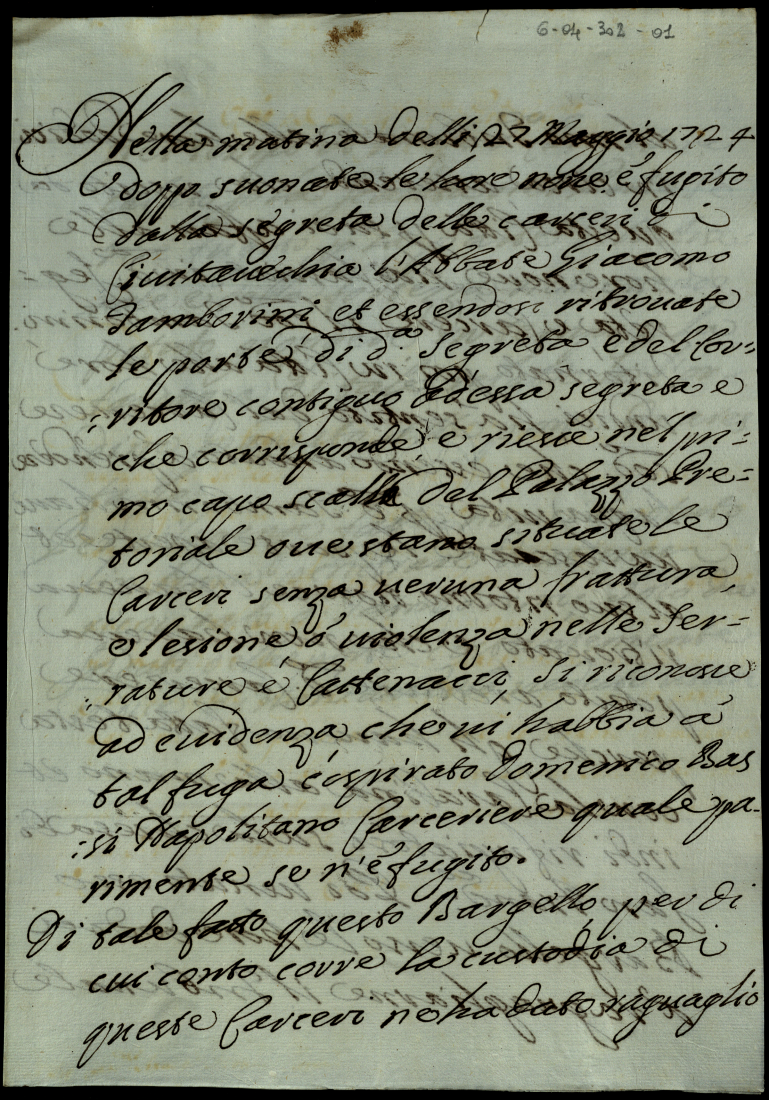 6-04-302-01
Nella matina delli 27 Maggio 1724
dopp suonate le hore nove é fugito
dalla segreta delle carceri di
Civitavechia l'Abbate Giacomo
Tamborini et essendosi ritrovate
le porte di d.a segreta e del Cor-
:ritore contiguo ad essa segreta e
che corrisponde, e riesce nel pri-
mo capo scalla del Palazzo Pre=
toriale ove stano situate le
Carceri senza veruna frattura,
o lesione ó violenza nelle Ser-
:rature é Cattenacci, si riconosce
ad evidenza che vi habbia á
tal fuga cospirato Domenico Bas
:si Napolitano Carceriere quale pa-
rimente se n'é fugito.
Di tale fatto questo Bargello per di
cui conto corre la custodia di
queste Carceri ne ha dato raguaglio